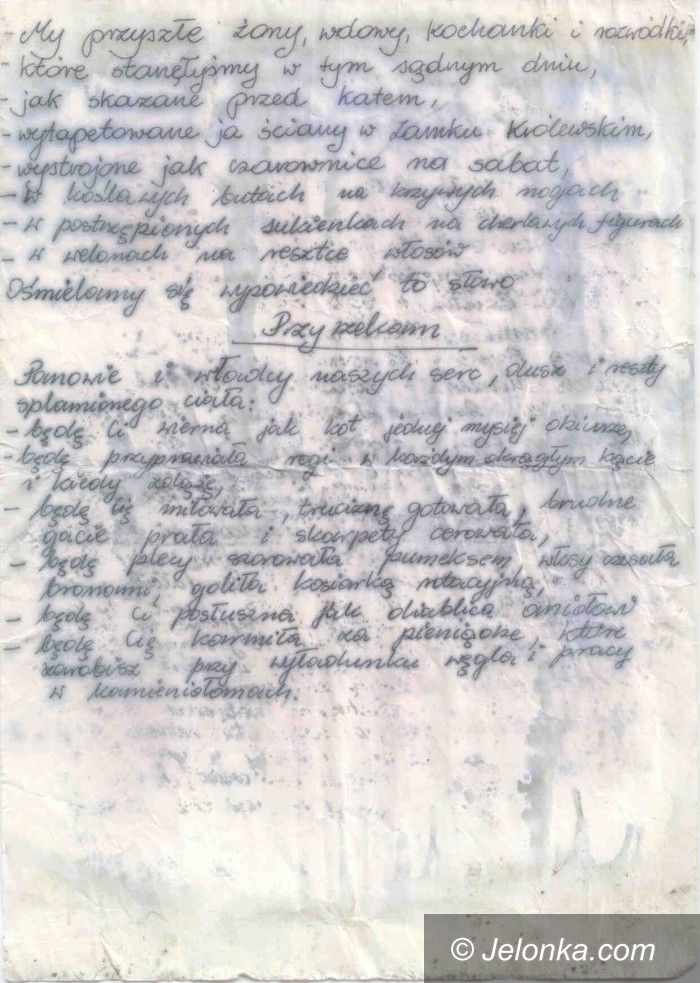 - My przyszłe żony, wdowy, kochanki i rozwódki,
- które stanęłyśmy w tym sądnym dniu,
- jak skazane przed katem,
- wytapetowane ja ściany w Zamku Królewskim,
- wystrojone jak czarownice na sabat,
- w koślawych butach na krzywych nogach
- w postrzępionych sukienkach na cherlawych figurach
- w welonach na resztce włosów
Ośmielamy się wypowiedzieć to słowo
Przyrzekam
Panowie i władcy naszych serc, dusz i reszty
splamionego ciała:
- będę Ci wierna jak kot jednej mysiej dziurze,
- będę przyprawiała rogi w każdym okrągłym kącie
i kiedy zdążę,
- będę Cię miłowała, truciznę gotowała, brudne
gacie prała i skarpety cerowała,
- będę plecy szorowała pumeksem, włosy czesała
bronami, goliła kosiarką rotacyjną,
- będę Ci posłuszna jak diablica aniołowi
- będę Cię karmiła za pieniądze, które
zarobisz przy wyładunku węgla i pracy
w kamieniołomach.
© Jelonka.com